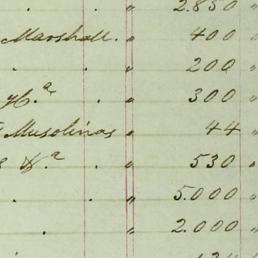 . " 2.850 "
Marshall. " 400 "
. . " 200 "
Hª. . " 300 "
Musolinas " 44 "
& ª " 530 "
. " 5.000 "
. " 2.000 "